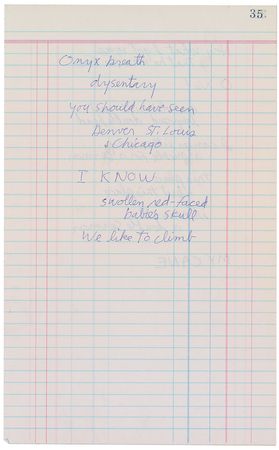 35
Onyx breath
dysentary
you should have seen
Denver St. Louis
& Chicago
I KNOW
swollen red-faced
babies skull
We like to climb
MY CANE